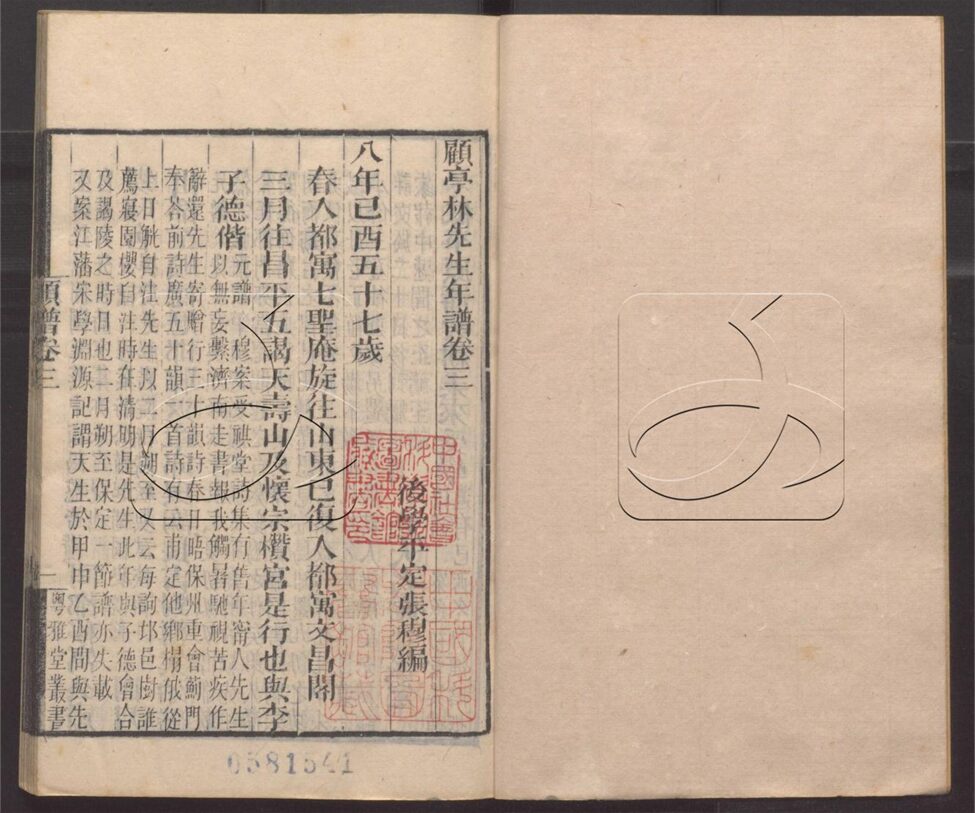 顧亭林先生年譜卷三
後學平定張穆編
八年己酉五十七歲
春入都寓七聖庵旋往山東已復入都寓文昌閣
三月往昌平五謁天壽山及懷宗欑宮是行也與李
子德偕元譜穆案受祺堂詩集有舊年甯人先生
以無妄繫濟南走書報我觸暑馳視苦疾作
辭還先生寄贈行三十韻詩春日晤保州重會薊門
奉荅前詩廣五十韻一首詩有公甫定他鄉榻俄從
上日觥自注先生以二月朔至又云每詢邶邑樹誰
薦寢園櫻自注時在清明是先生此年與子德會合
及謁陵之時日也二月朔至保定一節譜亦失載
又案江藩宋學淵源記謂天生於甲申乙酉間與先
顧譜卷三
一
粵雅堂叢書
0581541